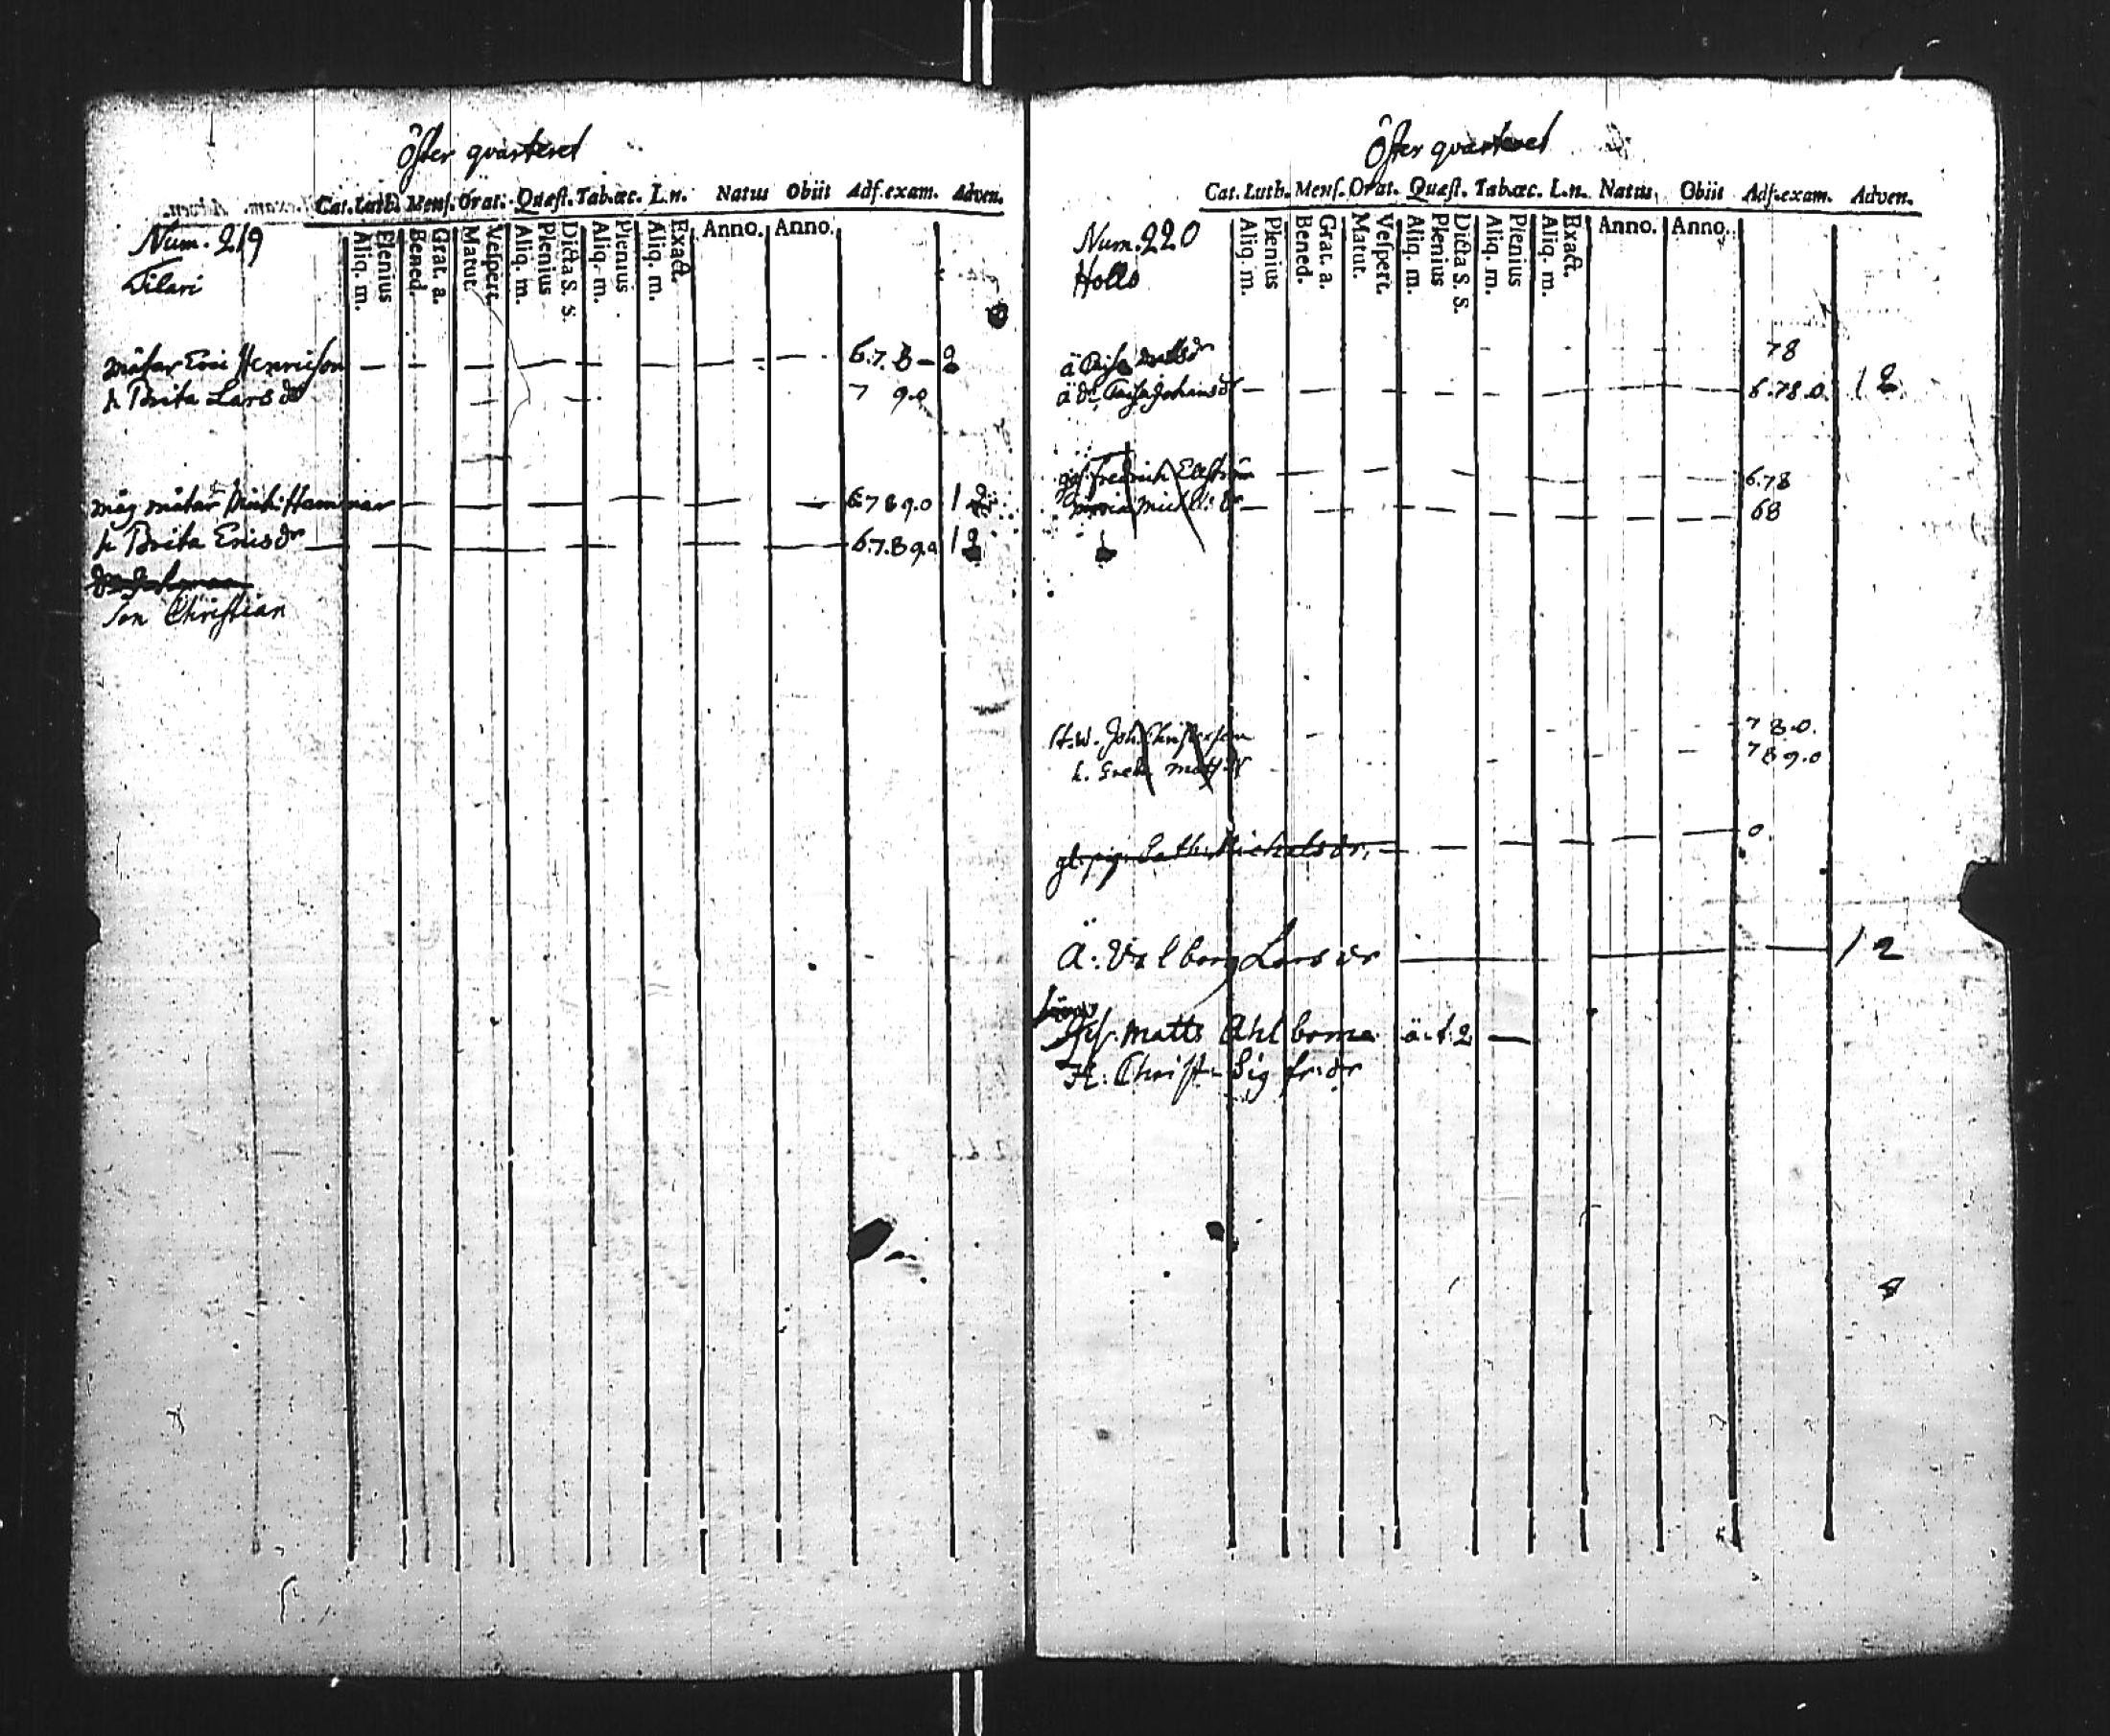 Öster qvarteret
Cat. Luth. Mens. Orat. Quæst. Tab. œc. L. n. Natus Obiit Adf. exam. Adven.
Aliq. m. Plenius Bened. Grat. a. Matut. Vespert. Aliq. m. Plenius Dicta S. S. Aliq. m. Plenius Aliq. m. Exact. Anno. Anno.
Num. 219
Tilari
Eric Henricson 6.7.8 - 2
h Brita Lars dr 7 9.0
måg Mich: Hammar 6 7 8 9.0 1
h Brita Erics dr 6.7.8 9.0 1 2
Son Christian
Öster qvarteret
Cat. Luth. Mens. Orat. Quæst. Tab. œc. L. n. Natus Obiit Adf. exam. Adven.
Aliq. m. Plenius Bened. Grat. a. Matut. Vespert. Aliq. m. Plenius Dicta S. S. Aliq. m. Plenius Aliq. m. Exact. Anno. Anno.
Num. 220
Hollo
ä 78
ä dr Johans dr 6.78.0. 1 2
Fredrich 6.78
Mich dr 68
St. W. Joh. 7 8.0.
h. Matts dr 7 8 9.0
gl. pig. Cath: Michels dr. 0.
Ä: Valborg Lars dr 1 2
Matts Ahlbom ä. t. 2
H: Christ. Sigfr: dr